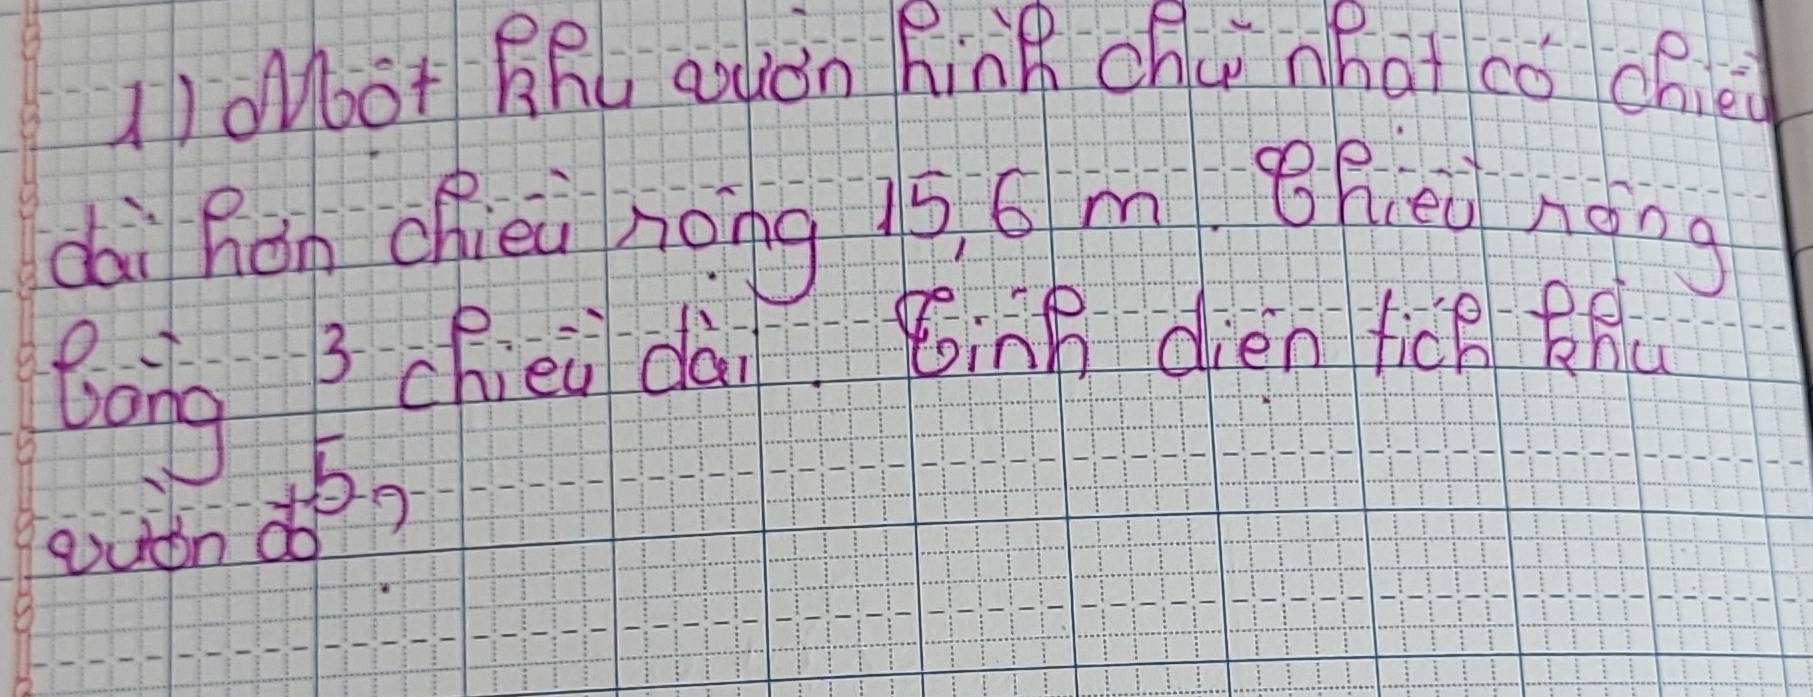 1) Một khu vườn hình chữ nhật có chiều
dài hơn chiều rộng 15,6 m. Chiều rộng
bằng 3/5 chiều dài. Tính diện tích khu
vườn đó?